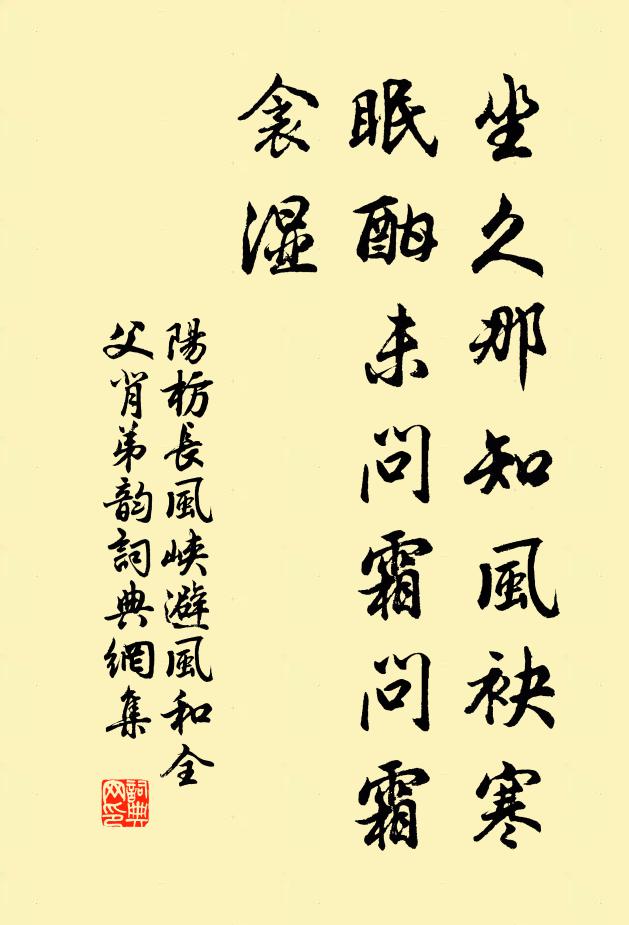 坐久那知風袂寒
眠酣未問霜問霜
衾濕
陽枋長風峽避風和全
父肖弟韵詞典網集
詞典
网印